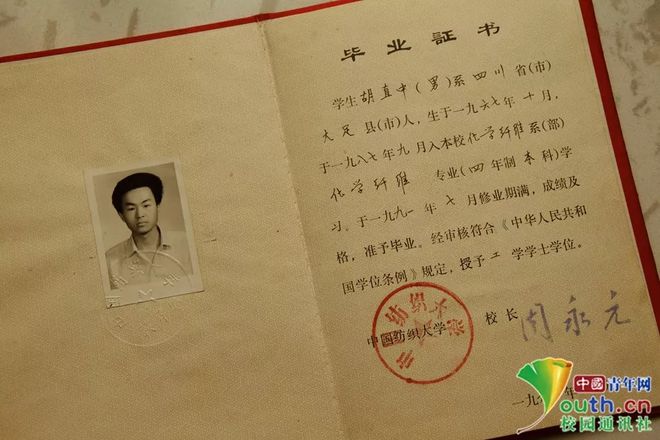 毕业証书
学生胡直中(男)系四川省(市)
大足县(市)人，生于一九六七年十月，
于一九八七年九月入本校化学纤维系(部)
化学纤维 专业(四年制本科)学
习。于一九九一年七月修业期满，成绩及
格，准予毕业。经审核符合《中华人民共和
国学位条例》规定，授予工学学士学位。
中国纺织大学 校长 周永元
中国纺织大学
一九
中國青年网
youth.cn
校园通讯社